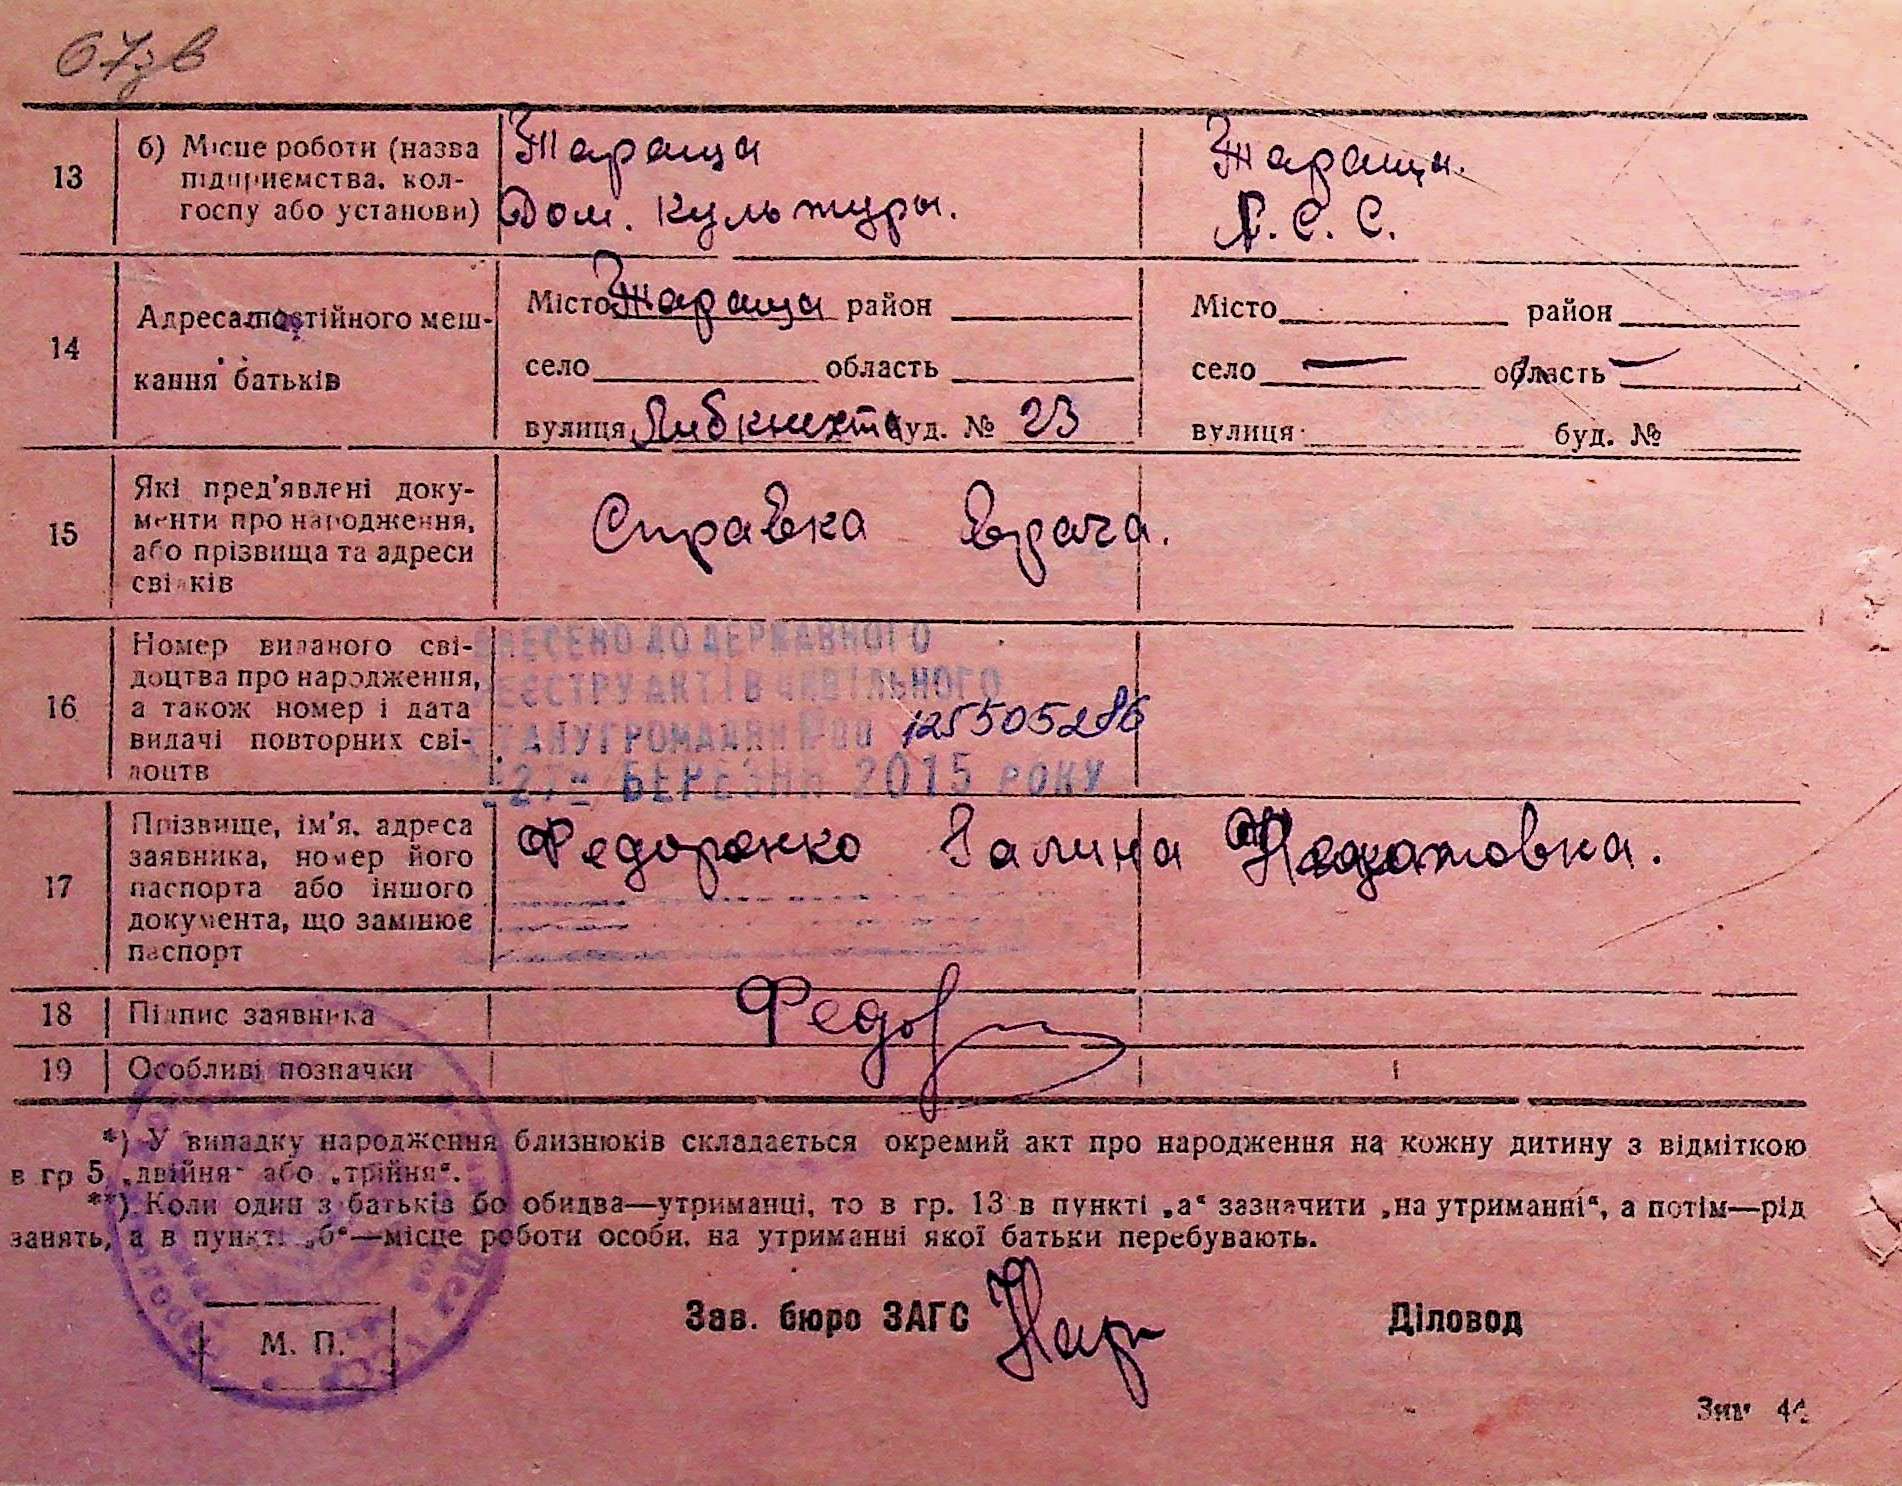 67зв
13
б) Місце роботи (назва
підприємства, кол-
госпу або установи)
Тараща
Дом. культуры.
Тараща.
Р. С. С.
14
Адреса постійного меш-
кання батьків
Місто Тараща район
село область
вулиця Либкнехта буд. № 23
Місто район
село область
вулиця буд. №
15
Які пред'явлені доку-
менти про народження,
або прізвища та адреси
свідків
Справка врача.
16
Номер виданого сві-
доцтва про народження,
а також номер і дата
видачі повторних сві-
доцтв
ВНЕСЕНО ДО ДЕРЖАВНОГО
РЕЄСТРУ АКТІВ ЦИВІЛЬНОГО
СТАНУ ГРОМАДЯН 125505286
"27" БЕРЕЗНЯ 2015 РОКУ
17
Прізвище, ім'я, адреса
заявника, номер його
паспорта або іншого
документа, що замінює
паспорт
Федоренко Галина
18
Підпис заявника
Федор
19
Особливі позначки
*) У випадку народження близнюків складається окремий акт про народження на кожну дитину з відміткою
в гр 5 „двійня“ або „трійня“.
**) Коли один з батьків бо обидва—утриманці, то в гр. 13 в пункті „а“ зазначити „на утриманні“, а потім—рід
занять, а в пункті „б“—місце роботи особи, на утриманні якої батьки перебувають.
М. П.
Зав. бюро ЗАГС
Діловод